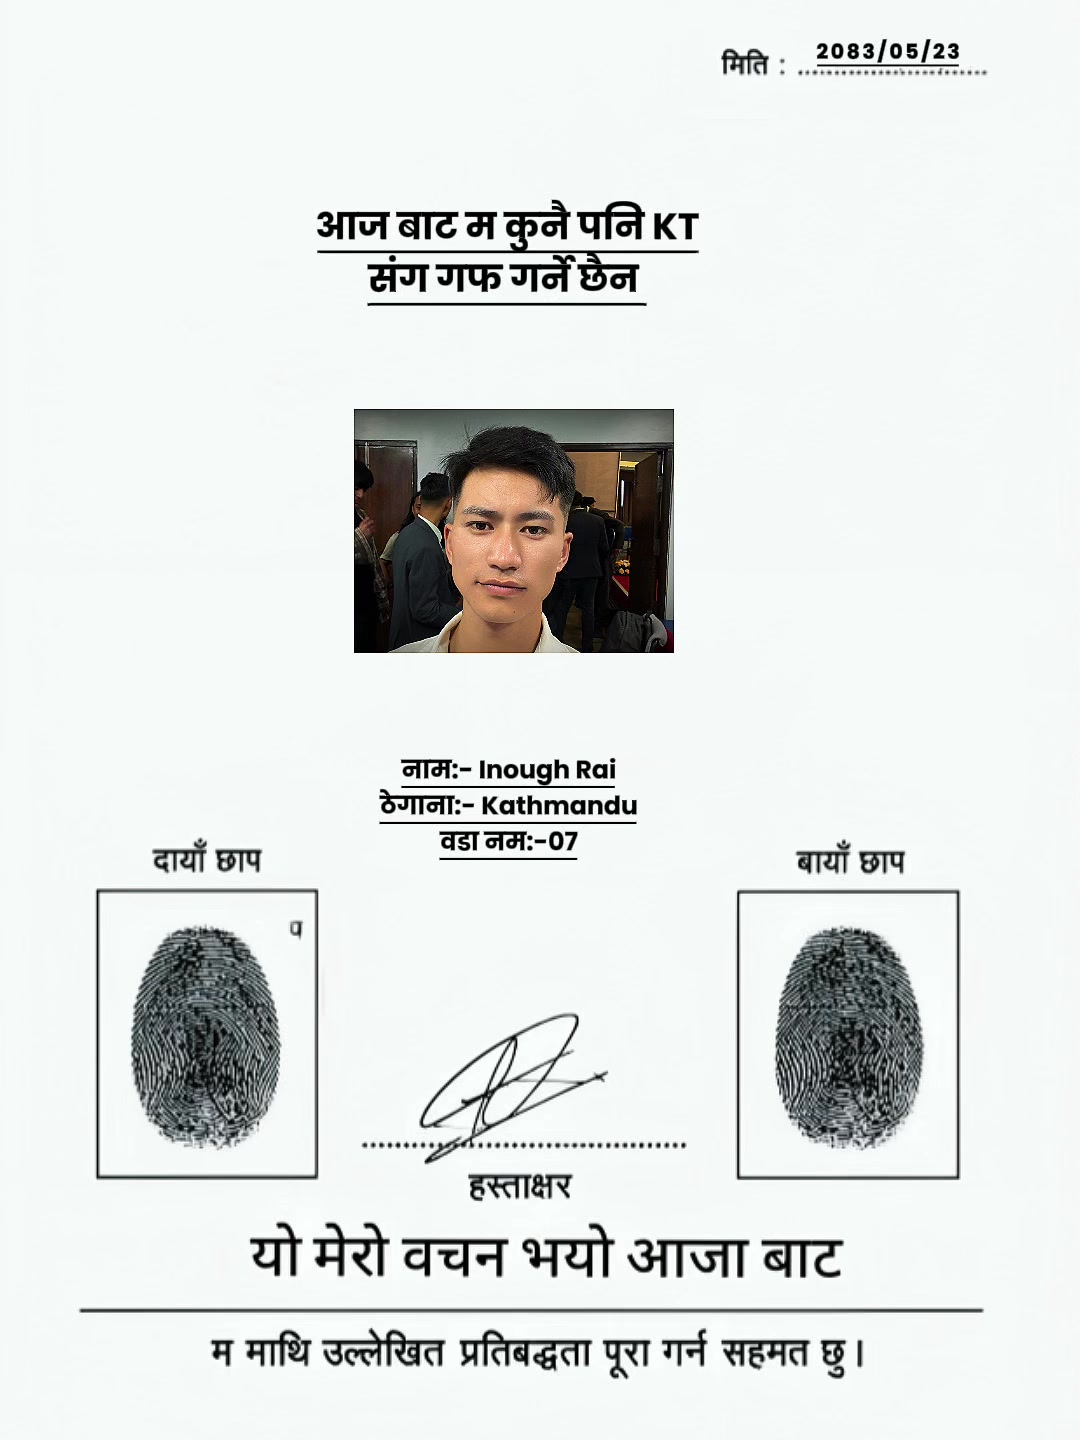 मिति : 2083/05/23
आज बाट म कुनै पनि KT
संग गफ गर्ने छैन
नाम:- Inough Rai
ठेगाना:- Kathmandu
वडा नम:-07
दायाँ छाप
बायाँ छाप
हस्ताक्षर
यो मेरो वचन भयो आजा बाट
म माथि उल्लेखित प्रतिबद्धता पूरा गर्न सहमत छु।